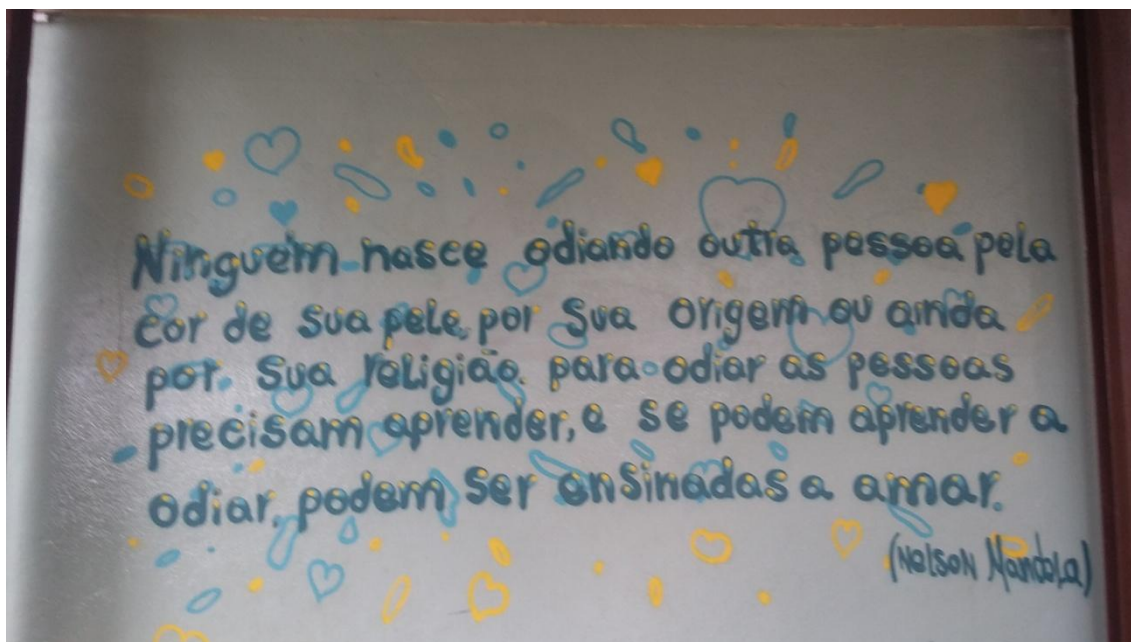 Ninguém nasce odiando outra pessoa pela
cor de sua pele, por sua origem ou ainda
por sua religião. para odiar as pessoas
precisam aprender, e se podem aprender a
odiar, podem ser ensinadas a amar.
(NELSON Mandela)